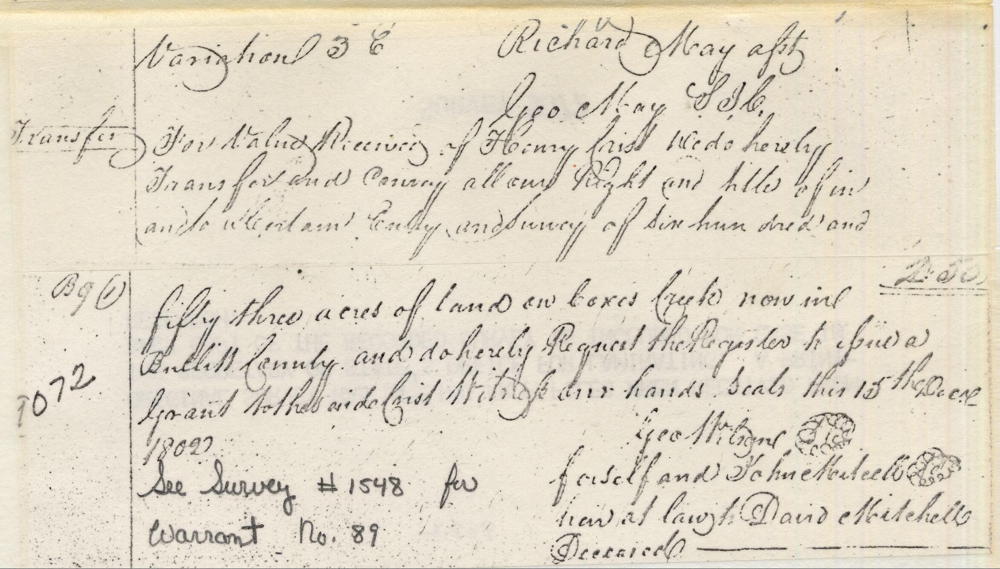 Variation 3 E Richard May asst
Geo May S J C.
Transfer For Value Received of Henry Crist We do hereby
Transfer and Convey all our Right and title of in
and to a Certain Entry and Survey of six hundred and
2.50
B 9 (1) fifty three acres of land on Coxes Creek now in
Bullitt County and do hereby Request the Register to issue a
Grant to the said Crist Witness our hands Seals this 15th Decr
1802
Geo Wilsone
for self and John Mitchell
heir at law of David Mitchell
Deceased
See Survey # 1548 for
Warrant No. 89